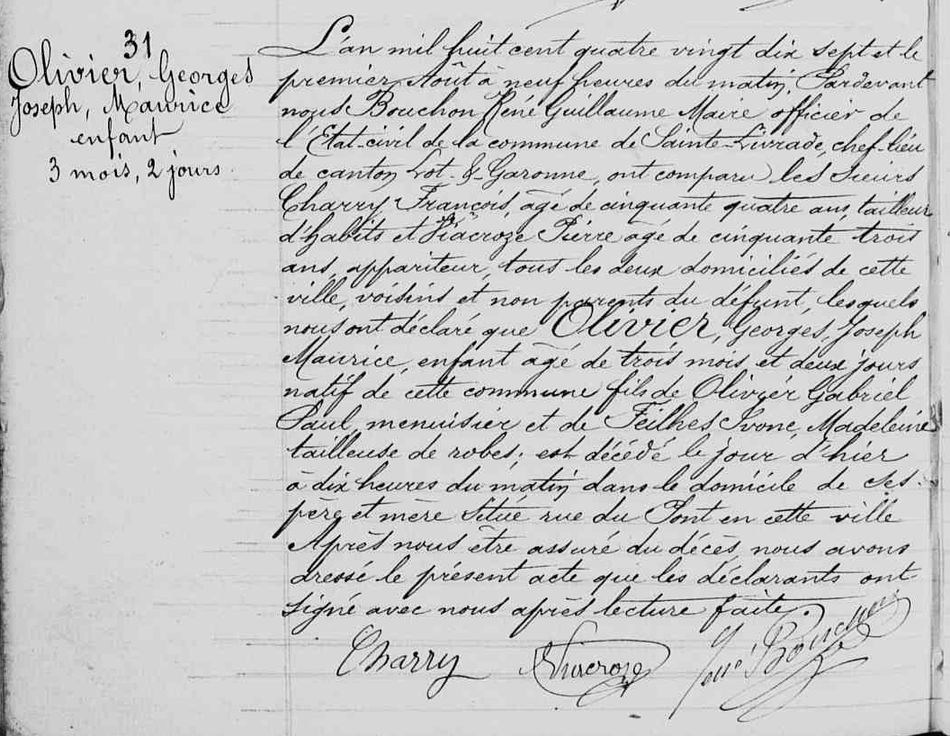 31
Olivier, Georges
Joseph, Maurice
enfant
3 mois, 2 jours
L'an mil huit cent quatre vingt dix sept et le
premier Août à neuf heures du matin, Pardevant
nous Bouchon René Guillaume Maire officier de
l'Etat-civil de la commune de Sainte-Livrade, chef-lieu
de canton Lot-&-Garonne, ont comparu les sieurs
Charry François, agé de cinquante quatre ans, tailleur
d'habits et Viacroze Pierre agé de cinquante trois
ans, appariteur, tous les deux domiciliés de cette
ville, voisins et non parents du défunt, lesquels
nous ont déclaré que Olivier, Georges, Joseph
Maurice, enfant agé de trois mois et deux jours
natif de cette commune fils de Olivier Gabriel
Paul, menuisier et de Feilhes Ivone, Madeleine
tailleuse de robes; est décédé le jour d'hier
à dix heures du matin dans le domicile de ses
père et mère situé rue du Pont en cette ville
Après nous être assuré du décès, nous avons
dressé le présent acte que les déclarants ont
signé avec nous après lecture faite.
Charry Viacroze René Bouchon